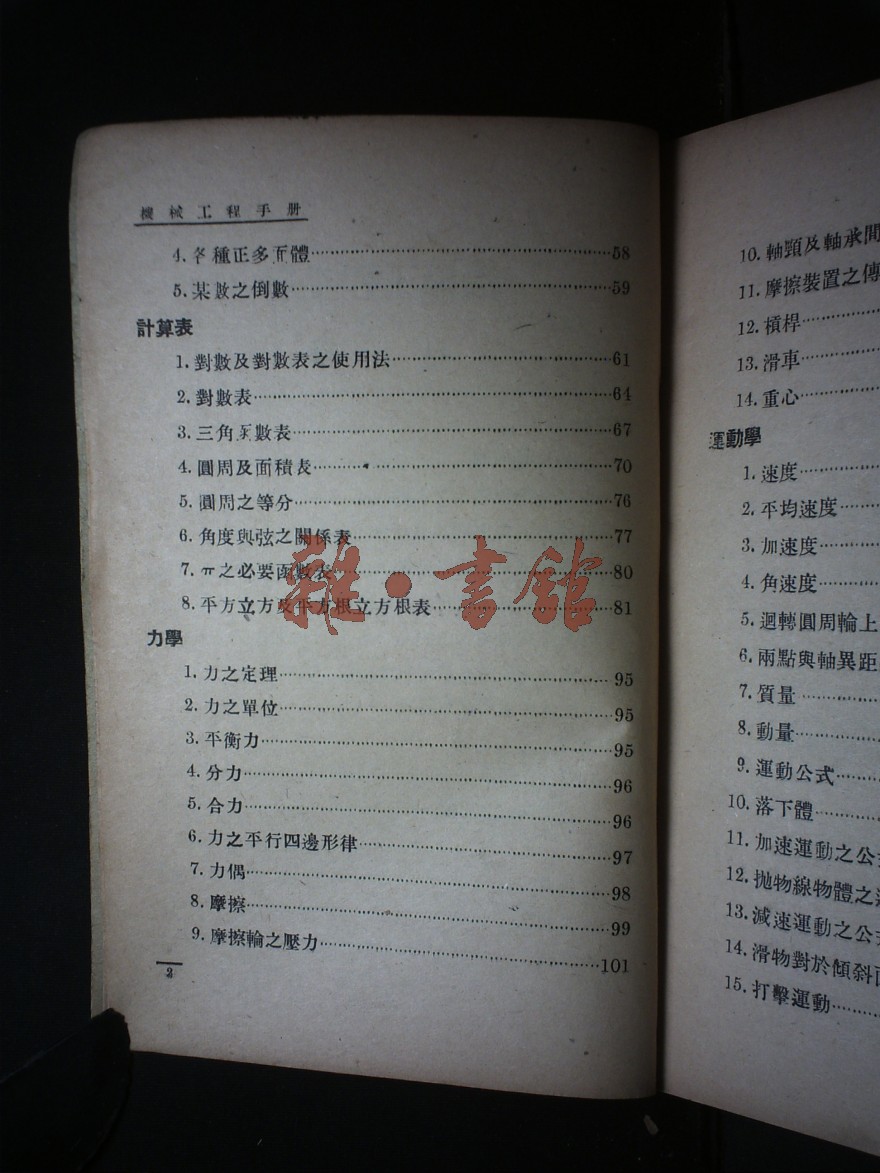 機械工程手册
4. 各種正多面體 58
5. 某數之倒數 59
計算表
1. 對數及對數表之使用法 61
2. 對數表 64
3. 三角函數表 67
4. 圓周及面積表 70
5. 圓周之等分 76
6. 角度與弦之關係表 77
7. π之必要函數表 80
8. 平方立方及平方根立方根表 81
雜·書館
力學
1. 力之定理 95
2. 力之單位 95
3. 平衡力 95
4. 分力 96
5. 合力 96
6. 力之平行四邊形律 97
7. 力偶 98
8. 摩擦 99
9. 摩擦輪之壓力 101
2
10. 軸頸及軸承間
11. 摩擦裝置之傳
12. 槓桿
13. 滑車
14. 重心
運動學
1. 速度
2. 平均速度
3. 加速度
4. 角速度
5. 迴轉圓周輪上
6. 兩點與軸異距
7. 質量
8. 動量
9. 運動公式
10. 落下體
11. 加速運動之公
12. 拋物線物體之
13. 減速運動之公
14. 滑物對於傾斜
15. 打擊運動